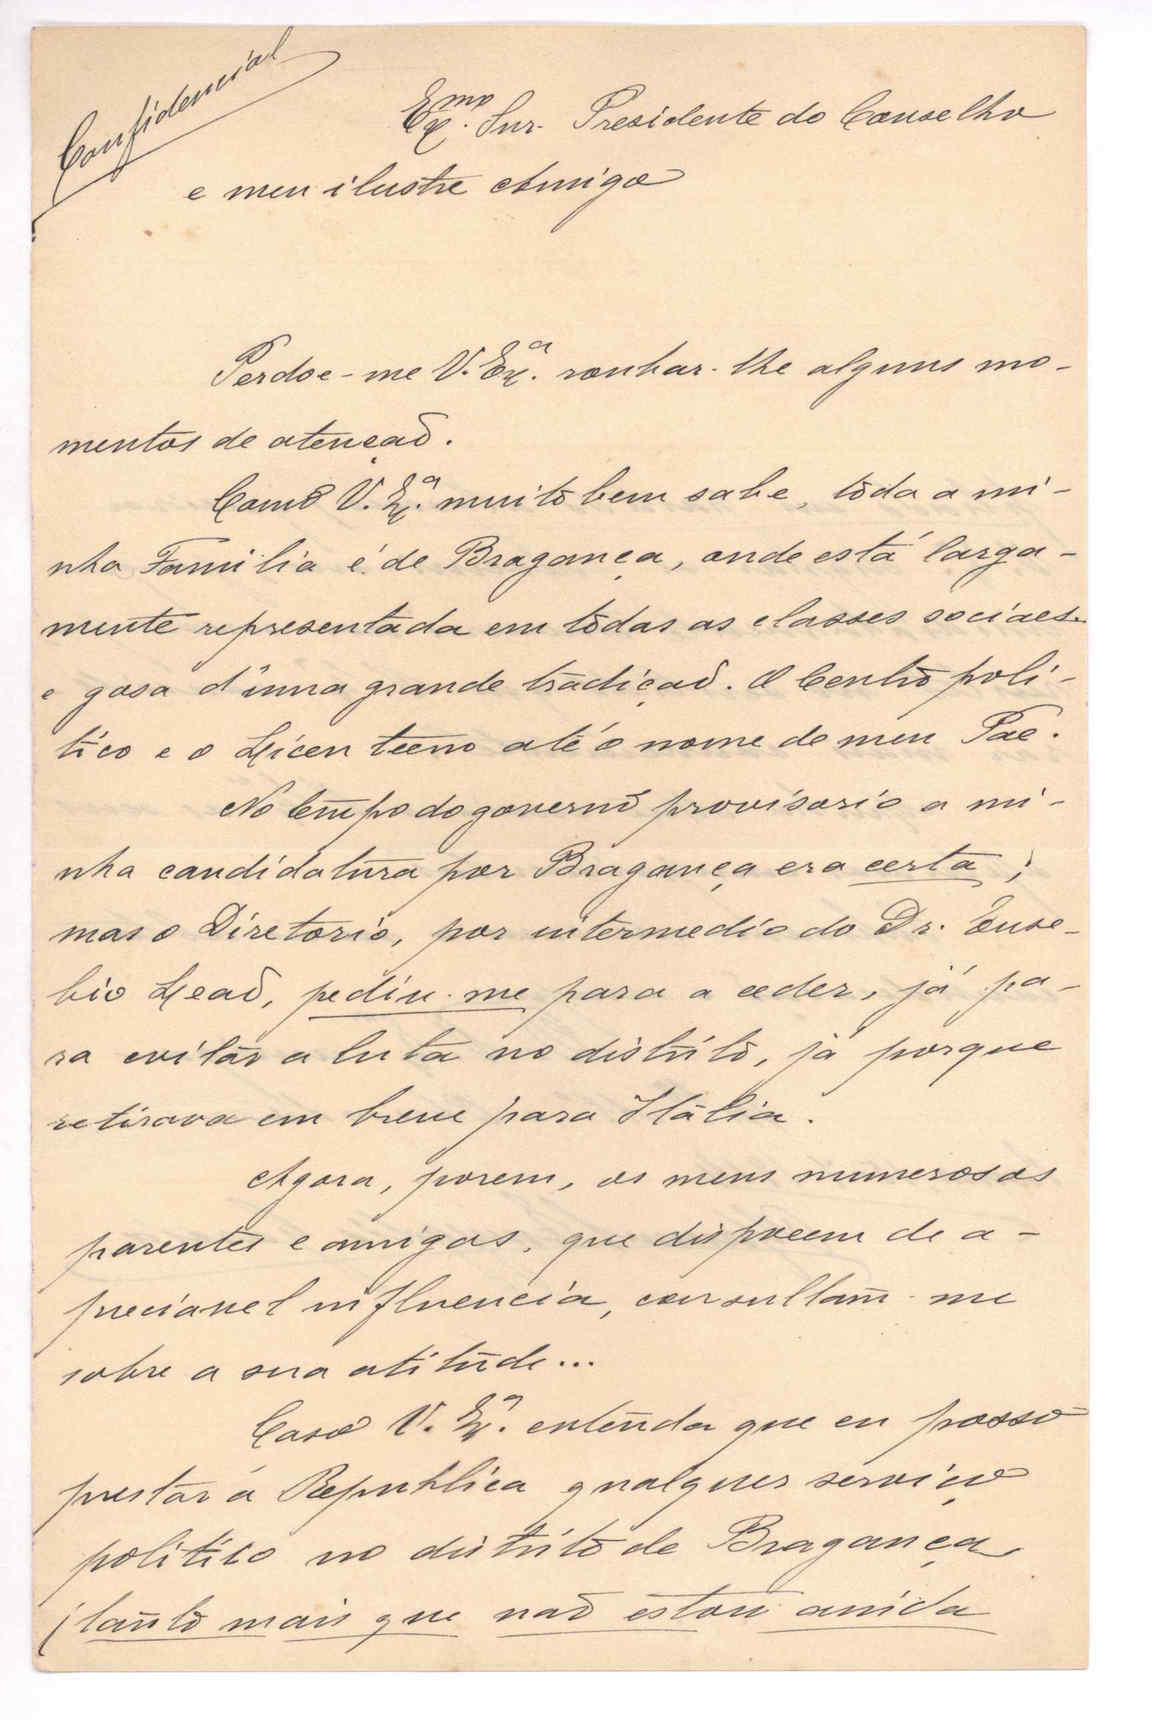 Confidencial
Exmo. Snr. Presidente do Conselho
e meu ilustre Amigo
Perdoe-me V. Exa. roubar-lhe alguns mo-
mentos de atenção.
Como V. Exa. muito bem sabe, toda a mi-
nha Familia é de Bragança, onde está larga-
mente representada em todas as classes sociaes
e gosa d'uma grande tradição. O Centro poli-
tico e o Liceu teem até o nome de meu Pae.
No tempo do governo provisorio a mi-
nha candidatura por Bragança era certa;
mas o Diretorio, por intermedio do Dr. Euse-
bio Leão, pediu-me para a ceder, já pa-
ra evitar a luta no distrito, já porque
retirava em breve para Italia.
Agora, porem, os meus numerosos
parentes e amigos, que dispoem de a-
preciavel influencia, consultam-me
sobre a sua atitude...
Caso V. Exa. entenda que eu posso
prestar á Republica qualquer serviço
politico no distrito de Bragança
(tanto mais que não estou ainda